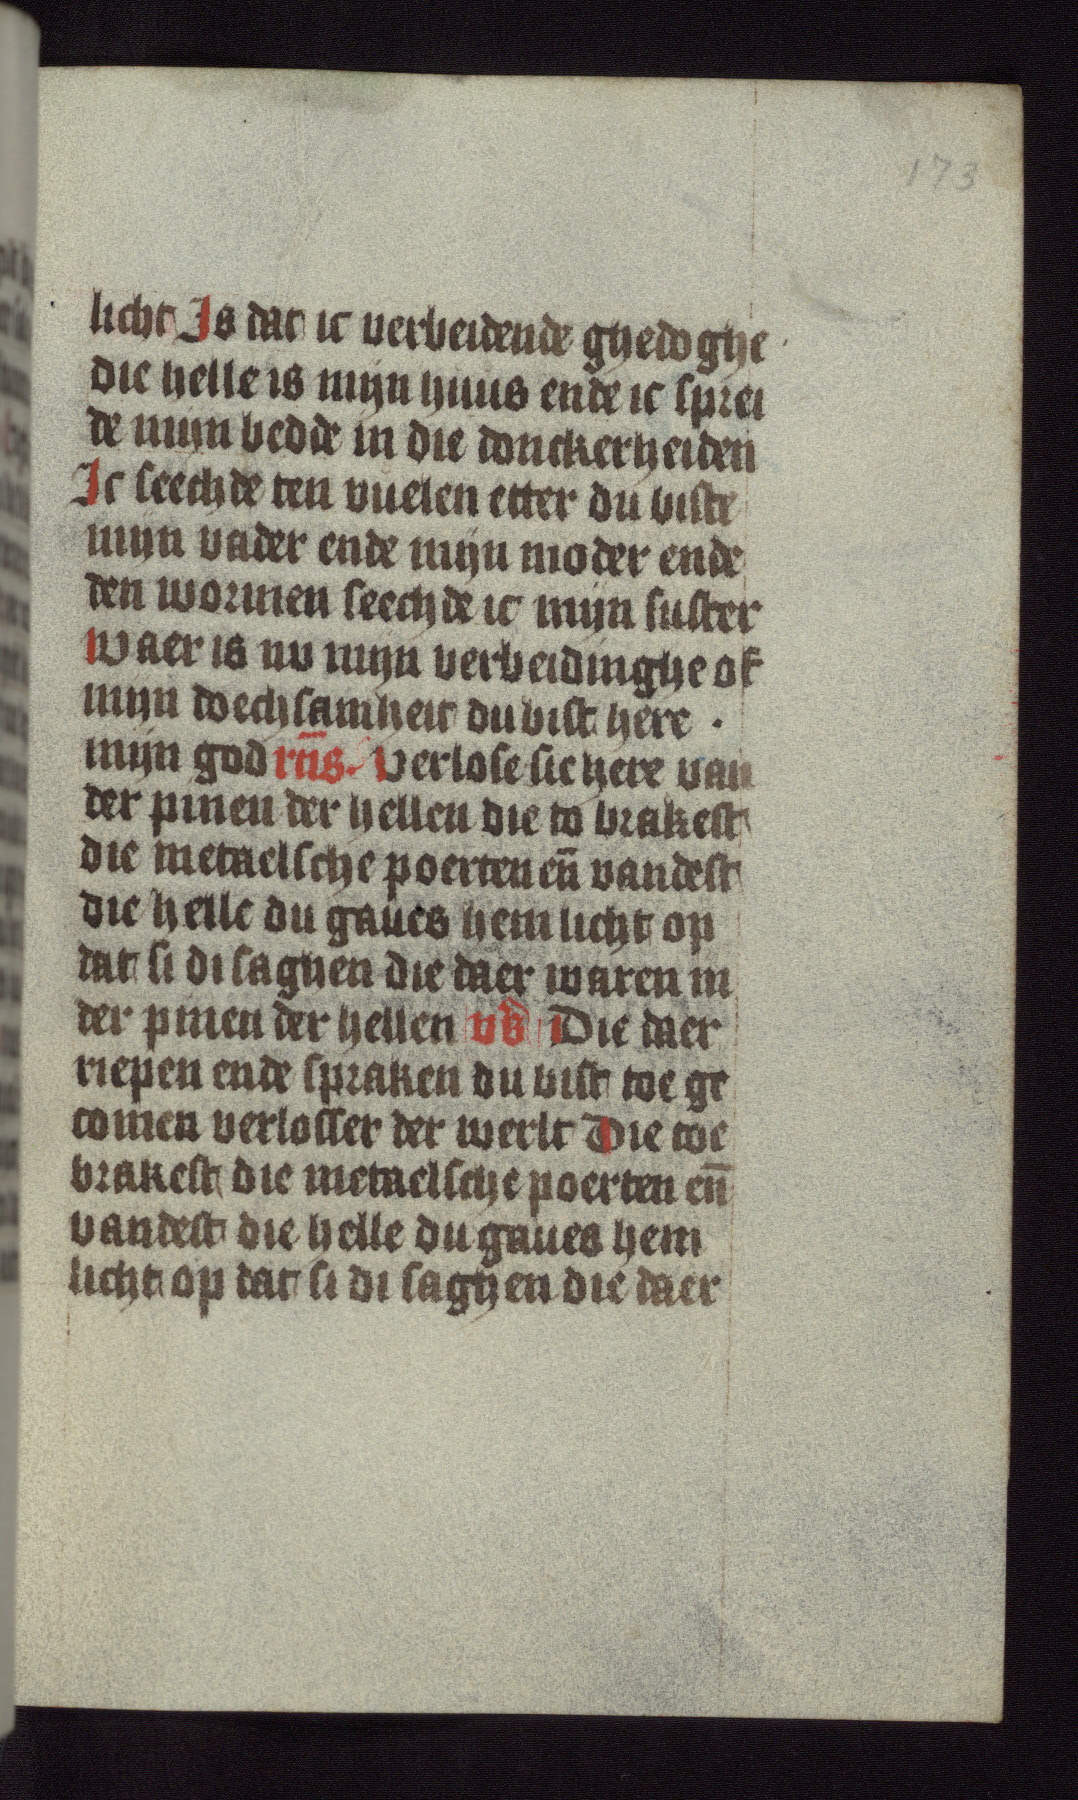 173
licht Is dat ic verbeidende ghedoghe
die helle is mijn huus ende ic sprei
de mijn bedde in die donckerheiden
Ic seechde ten vuelen etter du biste
mijn vader ende mijn moder ende
den wormen seechde ic mijn suster
Waer is nv mijn verbeidinghe of
mijn doechsamheit du bist here .
mijn god rn̄s. Verlose sic here van
der pinen der hellen die to brakest
die metaelsche poerten en̄ vandest
die helle du gaues hem licht op
dat si di saghen die daer waren in
der pinen der hellen vs̄ Die daer
riepen ende spraken du bist toe ge
comen verlosser der werlt Die toe
brakest die metaelsche poerten en̄
vandest die helle du gaues hem
licht op dat si di saghen die daer